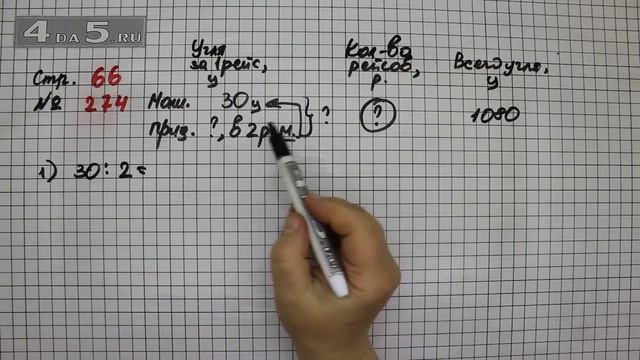 4DA5.RU
Стр. 66
№ 274
Угля за 1 рейс, ц
Кол-во рейсов, р.
Всего угля, ц
Маш. 30 ц ?
?
1080
Приц. ?, в 2 р. м.
1) 30 : 2 =